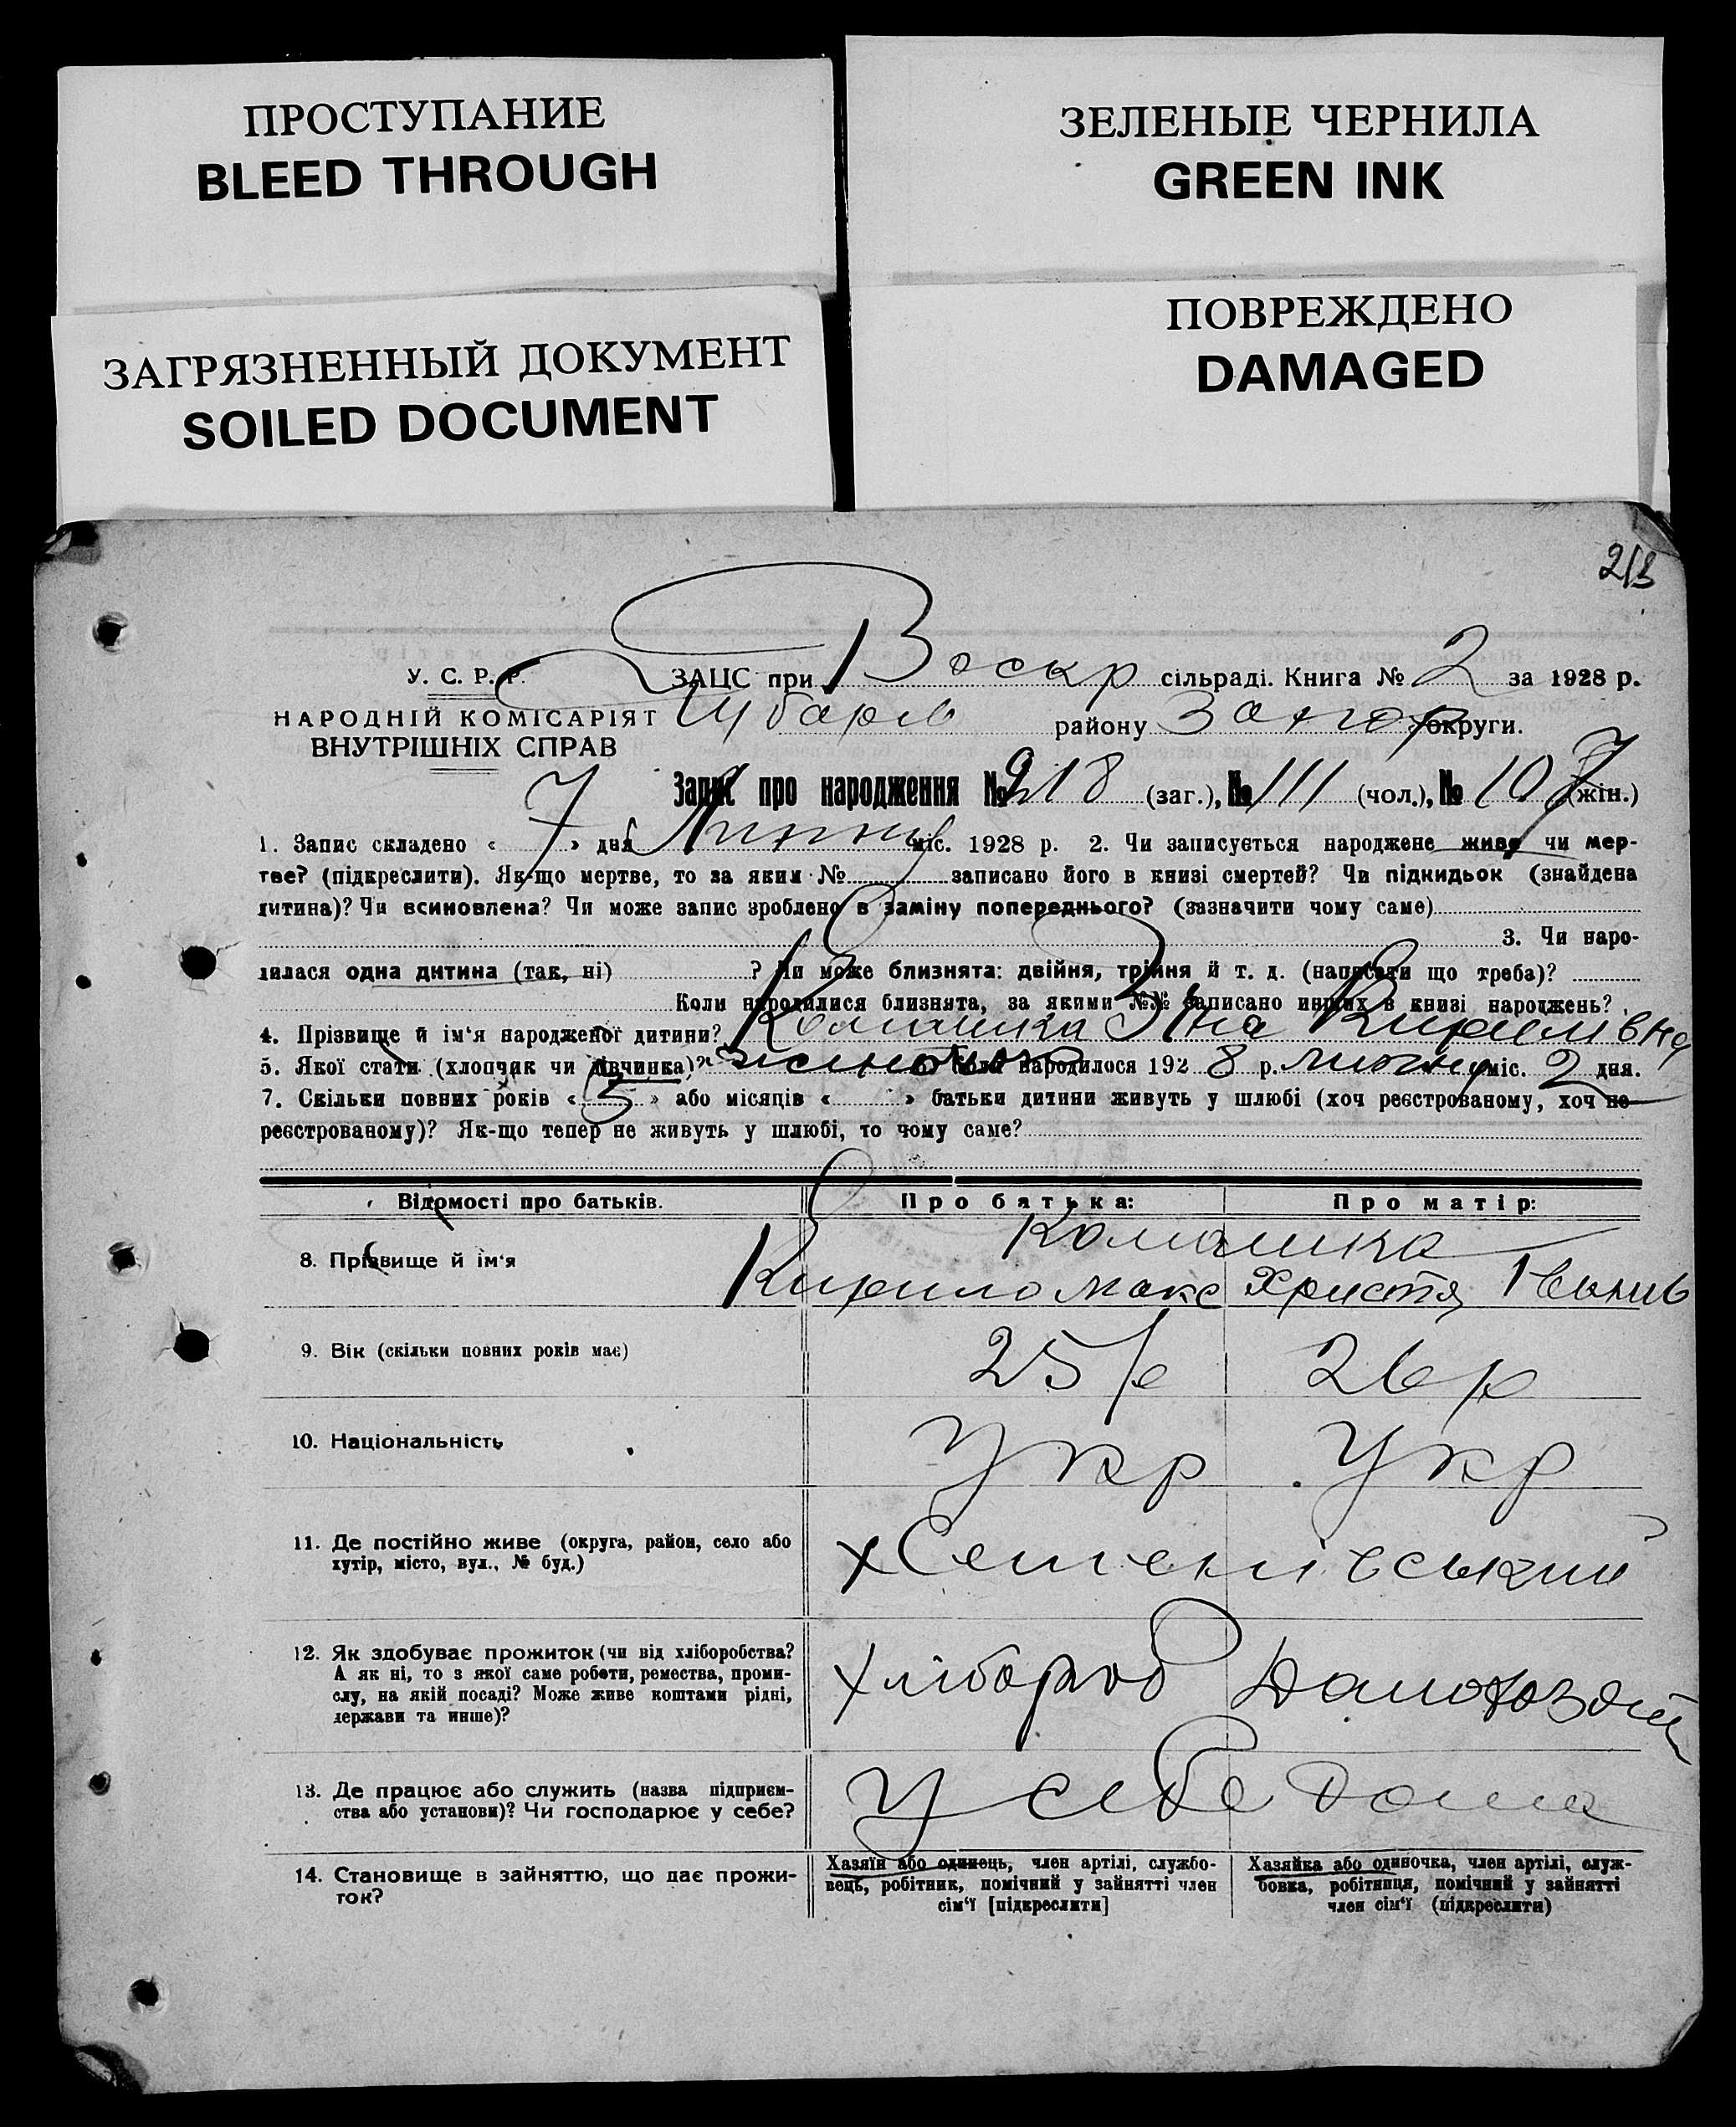 ПРОСТУПАНИЕ
BLEED THROUGH
ЗЕЛЕНЫЕ ЧЕРНИЛА
GREEN INK
ЗАГРЯЗНЕННЫЙ ДОКУМЕНТ
SOILED DOCUMENT
ПОВРЕЖДЕНО
DAMAGED
213
У. С. Р. Р.
НАРОДНІЙ КОМІСАРІЯТ
ВНУТРІШНІХ СПРАВ
ЗАЦС при Воскр сільраді. Книга № 2 за 1928 р.
Чубарів району Запор округи.
Запис про народження № 218 (заг.), № 111 (чол.), № 107 (жін.)
1. Запис складено « 7 » дня Липня міс. 1928 р. 2. Чи записується народжене живе чи мер-
тве? (підкреслити). Як-що мертве, то за яким № записано його в книзі смертей? Чи підкидьок (знайдена
дитина)? Чи всиновлена? Чи може запис зроблено в заміну попереднього? (зазначити чому саме)
3. Чи наро-
дилася одна дитина (так, ні) ? Чи може близнята: двійня, трійня й т. д. (написати що треба)?
Коли народилися близнята, за якими №№ записано инших в книзі народжень?
4. Прізвище й ім'я народженої дитини? Комашка Зіна Кирилівна
5. Якої стати (хлопчик чи дівчинка)? жіночою 6. Коли народилося 1928 р. липня міс. 2 дня.
7. Скільки повних років « 5 » або місяців « » батьки дитини живуть у шлюбі (хоч реєстрованому, хоч не
реєстрованому)? Як-що тепер не живуть у шлюбі, то чому саме?
Відомості про батьків. Про батька: Про матір:
8. Прізвище й ім'я Комашка
Кирило Макс Христя Іванів
9. Вік (скільки повних років має) 25 р 26 р
10. Національність Укр Укр
11. Де постійно живе (округа, район, село або
хутір, місто, вул., № буд.) х Семенівський
12. Як здобуває прожиток (чи від хліборобства?
А як ні, то з якої саме роботи, ремества, проми-
слу, на якій посаді? Може живе коштами рідні,
держави та инше)?
Хлібороб Домохозяй
13. Де працює або служить (назва підприєм-
ства або установи)? Чи господарює у себе?
У себе дома
14. Становище в зайняттю, що дає прожи-
ток?
Хазяїн або одинець, член артілі, службо-
вець, робітник, помічний у зайнятті член
сім'ї [підкреслити]
Хазяйка або одиночка, член артілі, служ-
бовка, робітниця, помічний у зайнятті
член сім'ї (підкреслити)